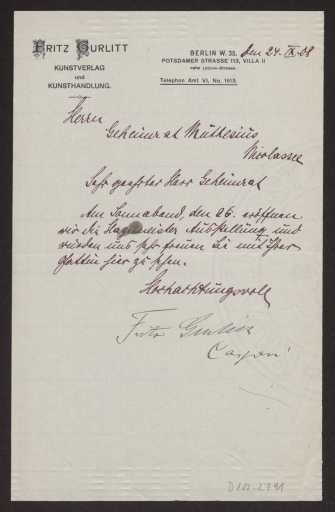 FRITZ GURLITT
KUNSTVERLAG
und
KUNSTHANDLUNG.
BERLIN W. 35, den 24. IX. 08
POTSDAMER STRASSE 113, VILLA II
Telephon Amt VI, No. 1913.
Herrn
Geheimrat Muthesius
Nicolassee
Sehr geehrter Herr Geheimrat
Am Sonnabend, den 26. eröffnen
wir die Hagemeister Ausstellung und
würden uns sehr freuen Sie mit Ihrer
Gattin hier zu sehen.
Hochachtungsvoll
Fritz Gurlitt
D 102-2791